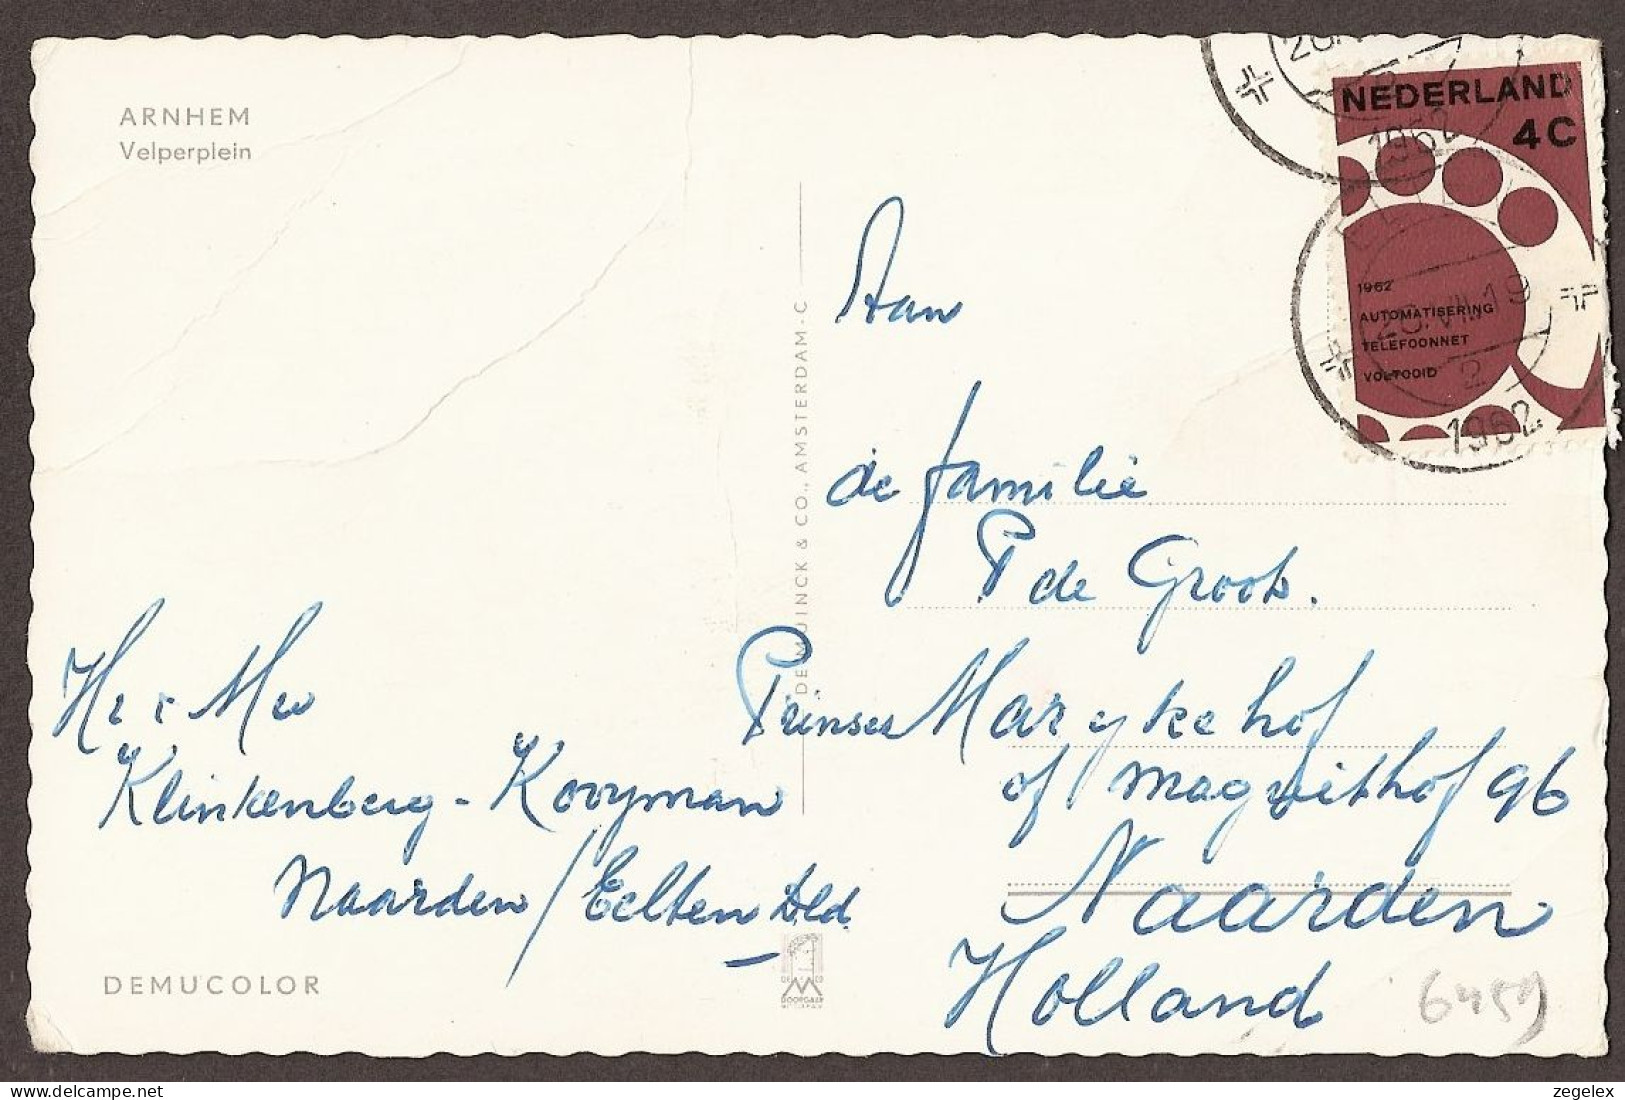 ARNHEM
Velperplein
NEDERLAND
4C
1962
1962
AUTOMATISERING
TELEFOONNET
VOLTOOID
25.VII.19
2
1962
DE MUINCK & CO., AMSTERDAM-C
Aan
de familie
P de Groot.
Prinses Marykehof
of Magrиethof 96
Naarden
Holland
Hr & Mw
Klinkenberg - Kooyman
Naarden / Eelten Dld.
DEMUCOLOR
6459
delcampe.net
zegelex